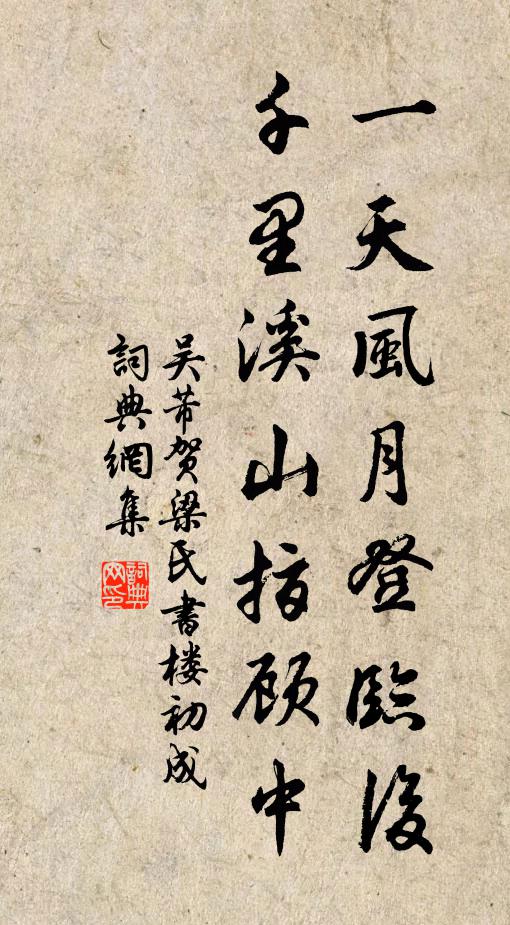 一天風月登臨後
千里溪山指顾中
吴芾贺梁氏書楼初成
詞典網集
詞典网印